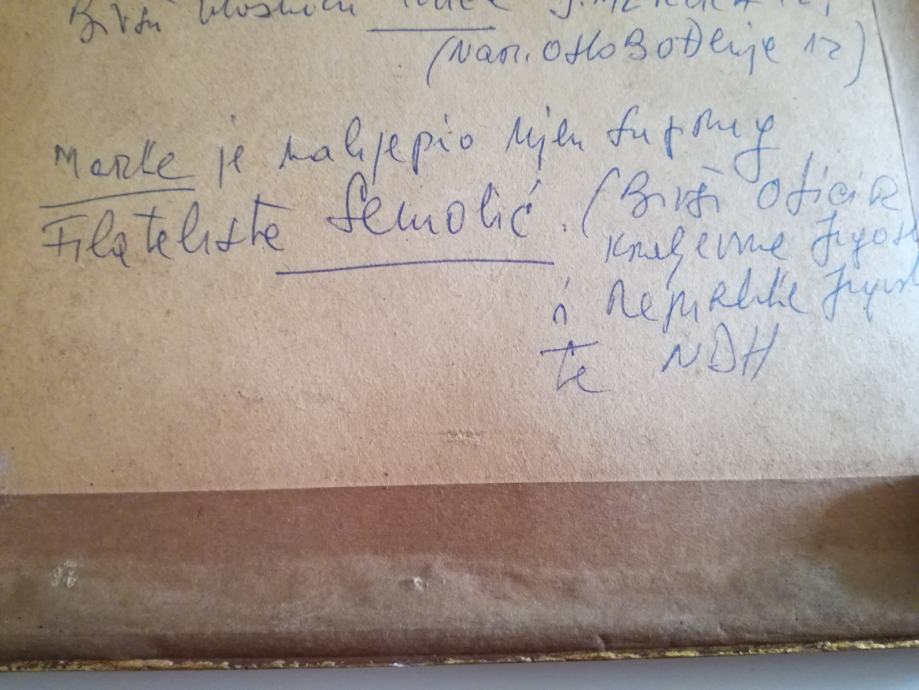 Bivši vlasnici
(Nar. oslobođenje 12)
Marke je nalijepio njen suprug
Filateliste Semolić. (Bivši oficir
Kraljevine Jugosl
i Republike Jugosl
te NDH